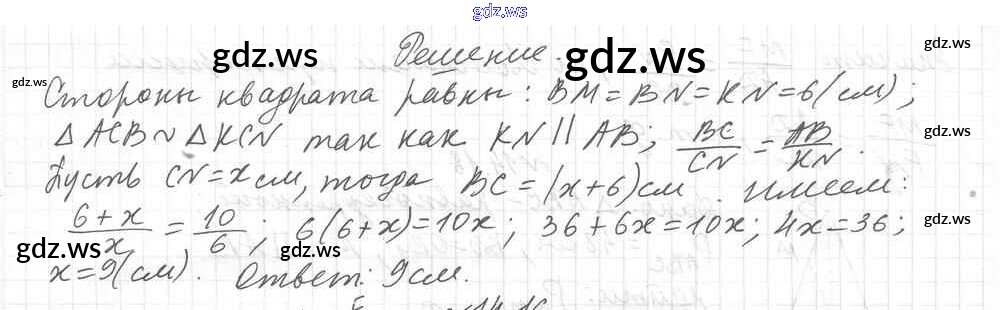 gdz.ws
Решение.
gdz.ws gdz.ws gdz.ws
gdz.ws
Стороны квадрата равны: BM = BN = KN = 6 (см);
△ ACB ~ △ KCN так как KN || AB; BC/CN = AB/KN.
gdz.ws
Пусть CN = x см, тогда BC = (x+6) см. имеем:
gdz.ws
(6+x)/x = 10/6; 6(6+x) = 10x; 36+6x = 10x; 4x = 36;
gdz.ws gdz.ws gdz.ws gdz.ws
x = 9 (см). Ответ: 9 см.